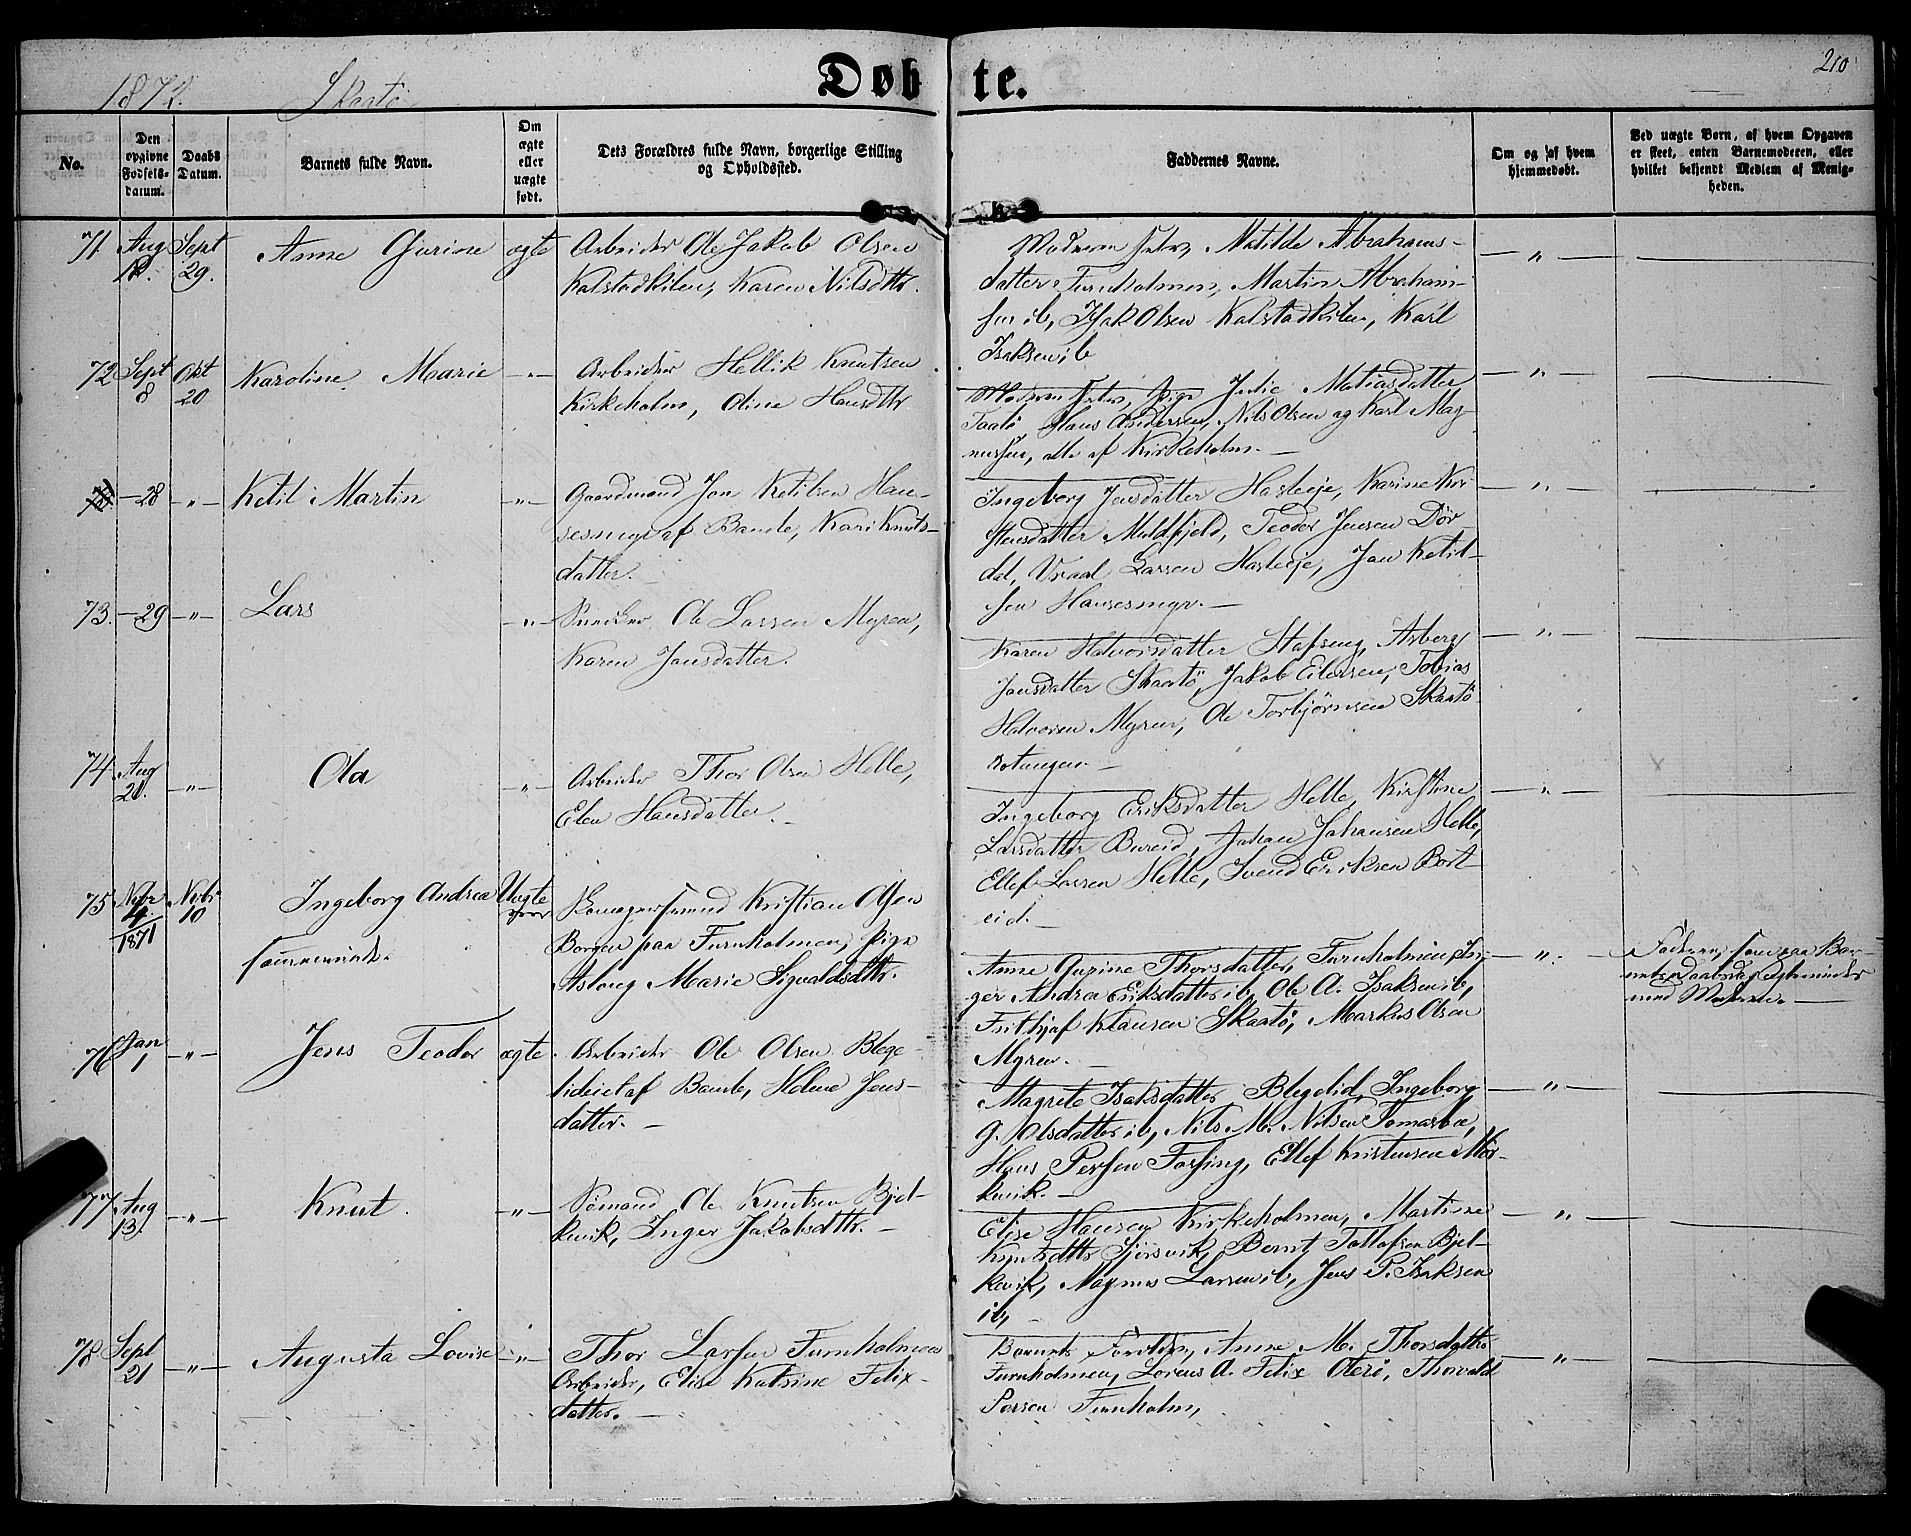 1872. Skaatö
Døbte.
210
No.
Den opgivne Fødsels-datum.
Daabs Datum.
Barnets fulde Navn.
Om ægte eller uægte født.
Dets Forældres fulde Navn, borgerlige Stilling og Opholdssted.
Faddernes Navne.
Om og af hvem hjemmedøbt.
Ved uægte Børn, af hvem Opgaven er skeet, enten Barnemoderen, eller hvilket bekjendt Medlem af Menigheden.
71 Aug Sept Anne Gurine ægte Arbeider Ole Jakob Olsen
29. Kalstadkilen, Karen Nilsdttr.
Moderen selv, Matilde Abrahams-
datter Furuholmen, Martin Abraham-
sen ib, Isak Olsen Kalstadkilen, Karl
Isaksen ib
72 Sept 8 Okt 20 Karoline Marie -"- Arbeider Hellik Knutsen
Kirkeholm, Aline Hansdttr
Moderen selv, Pige Julie Matiasdatter
Taatö Hans Andersen, Nils Olsen og Karl Mag-
nussen, alle af Kirkeholm. —
-28 -"- Ketil Martin -"- Gaardmand Jon Ketilsen Han-
sesmyr af Bamle, Kari Knuts-
datter. —
Ingeborg Jensdatter Hasleeje, Karine Kri-
stensdatter Muldfjeld, Teodor Jensen Dör-
dal, Vraal Larsen Hasleeje, Jon Ketil-
sen Hansesmyr. —
73. -29 -"- Lars -"- Snedker Ole Larsen Myren,
Karen Jensdatter.
Karen Halvorsdatter Stafseng, Asberg
Jensdatter Skaatö, Jakob Eilersen, Tobias
Halvorsen Myren, Ole Torbjörnsen Skaatö
74. Aug 21. -"- Ola -"- Arbeider Thor Olsen Helle,
Elen Hansdatter. —
Ingeborg Eriksdatter Helle, Kirstine
Larsdatter Bureid, Johan Johansen Helle,
Ellef Larsen Helle, Svend Eriksen Bort
eid. —
75 Novbr 4 1871 Novbr 10 Ingeborg Andrea Uægte
Kristian Olsen
Borgen paa Furuholmen, Pige
Aslaug Marie Sigvaldsdttr.
Anne Gurine Thorsdatter, Furuholmen, In-
ger Andrea Eriksdatter ib, Ole A. Isaksen ib,
Frithjof Klausen Skaatö, Markus Olsen
Myren. —
Faderen, som paa Bar-
med Moderen. —
76 Jan 1 -"- Jens Teodor ægte. Arbeider Ole Olsen Blege-
lideiet af Bamle, Helene Jens-
datter. —
Magrete Isaksdatter Blegelid, Ingeborg
G. Olsdatter ib, Nils M. Nilsen Tomasbæ,
Hans Persen Fossing, Ellef Kristensen Mör-
kevik. —
77 Aug 13. -"- Knut. -"- Sömand Ole Knutsen Bjel-
kevik, Inger Jakobsdttr. —
Elise Hansen Kirkeholmen, Martine
Knutsdttr Sjörsvik, Bernt Tollofsen Bjel-
kevik, Magnus Larsen ib, Jens P. Isaksen
ib, —
78 Sept 21 -"- Augusta Lovise -"- Thor Larsen Furuholmen
Arbeider, Elise Katrine Felix-
datter. —
Barnets Forældre, Anne M. Thorsdatter
Furuholmen, Lorens A. Felix Oterö, Thorvald
Larsen Furuholm,